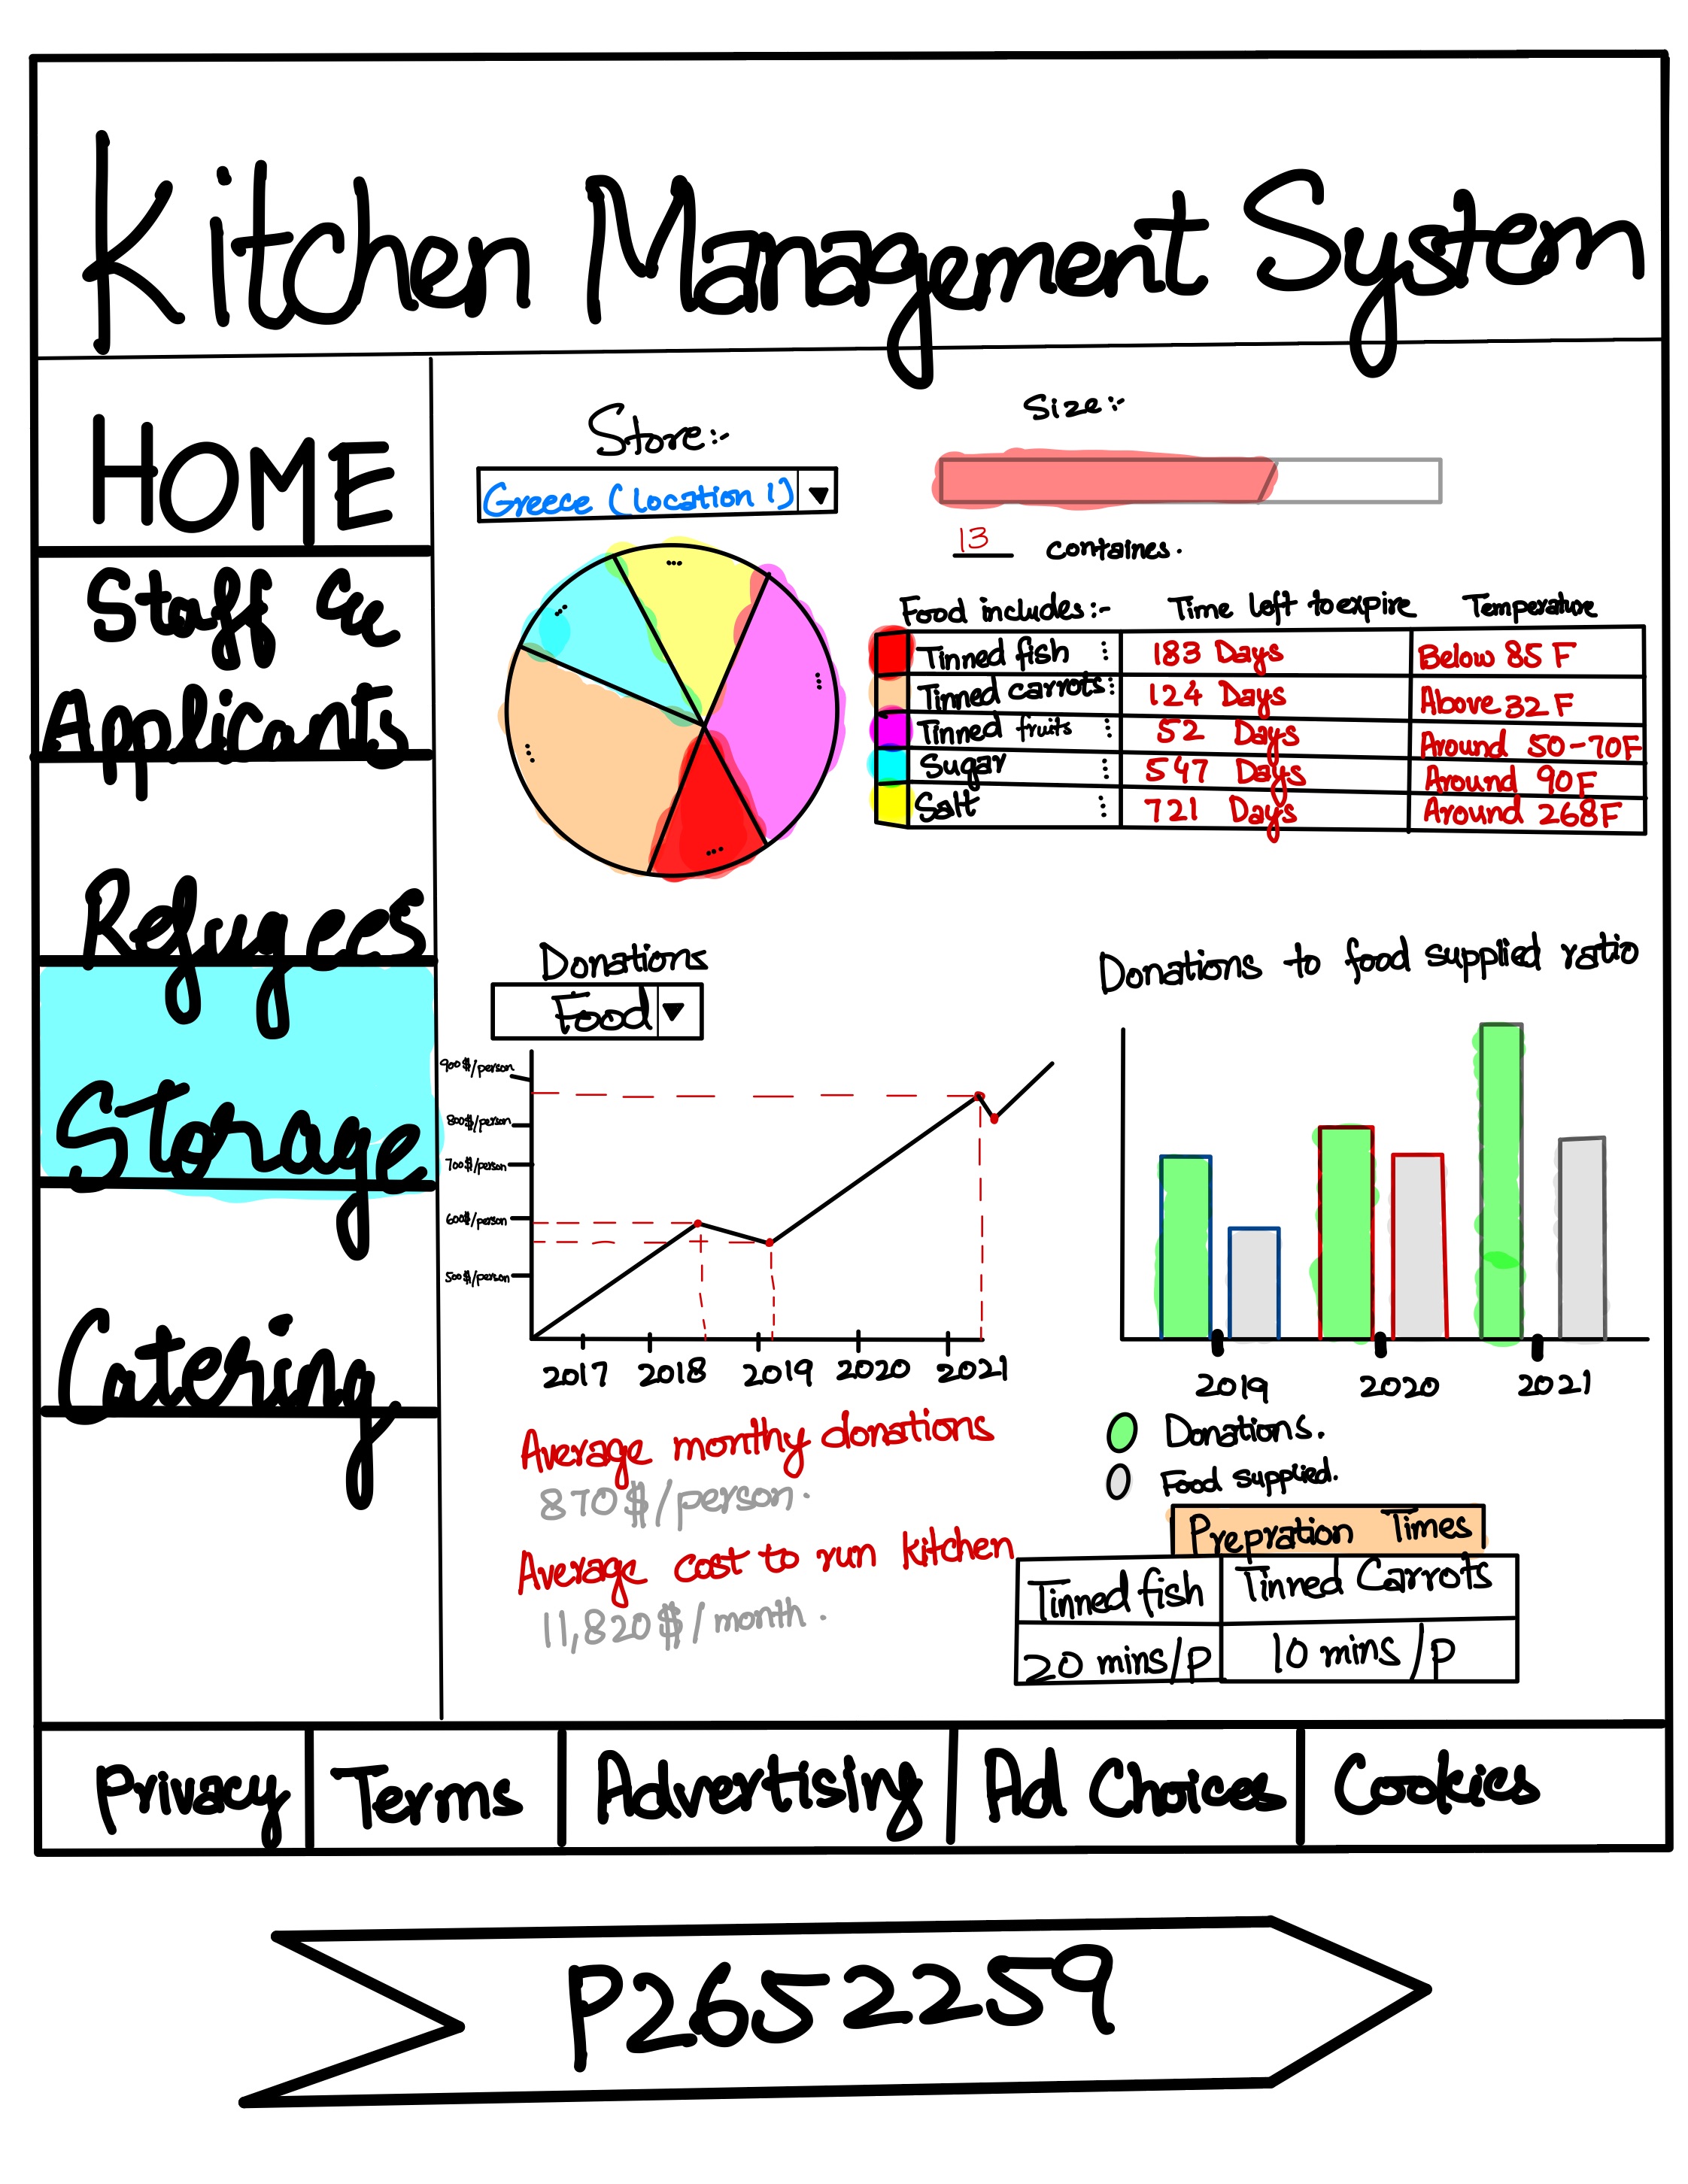 Kitchen Management System
HOME
Staff &
Applicants
Refugees
Storage
Catering
Store:-
Greece (Location 1)
Size:-
13 containes.
Food includes:- Time left to expire Temperature
Tinned fish 183 Days Below 85 F
Tinned carrots 124 Days Above 32 F
Tinned fruits 52 Days Around 50-70F
Sugar 547 Days Around 90F
Salt 721 Days Around 268F
Donations
Food
900$/person
800$/person
700$/person
600$/person
500$/person
2017 2018 2019 2020 2021
Average monthy donations
870$/person.
Average cost to run kitchen
11,820$/month.
Donations to food supplied ratio
2019 2020 2021
Donations.
Food supplied.
Prepration Times
Tinned fish Tinned Carrots
20 mins/P 10 mins/P
Privacy Terms Advertising Ad Choices Cookies
P2652259